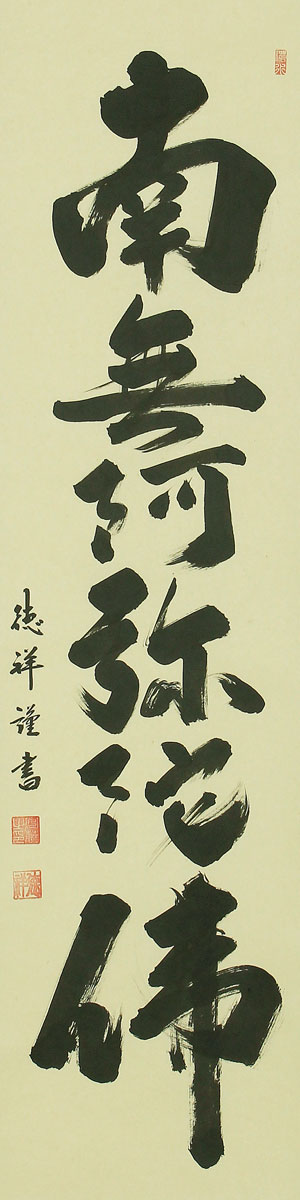 南無阿弥陀佛
徳祥謹書